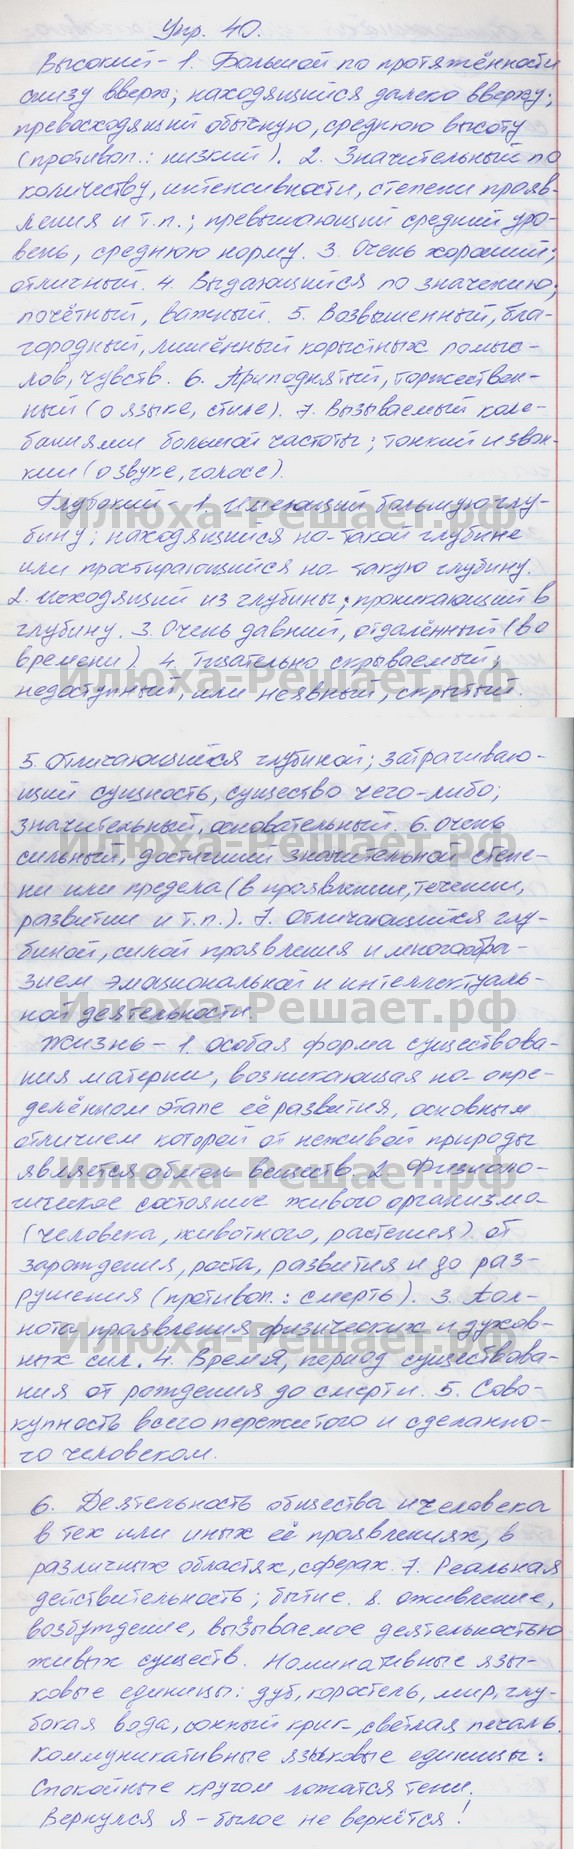 Упр. 40.
Высокий - 1. Большой по протяжённости
снизу вверх; находящийся далеко вверху;
превосходящий обычную, среднюю высоту
(противоп.: низкий). 2. Значительный по
количеству, интенсивности, степени прояв-
ления и т.п.; превышающий средний уро-
вень, среднюю норму. 3. Очень хороший;
отличный. 4. Выдающийся по значению;
почётный, важный. 5. Возвышенный, бла-
городный, лишённый корыстных помыс-
лов, чувств. 6. Приподнятый, торжествен-
ный (о языке, стиле). 7. Вызываемый коле-
баниями большой частоты; тонкий и звон-
кий (о звуке, голосе).
Глубокий - 1. Имеющий большую глу-
бину; находящийся на такой глубине
или простирающийся на такую глубину.
2. Исходящий из глубины; проникающий в
глубину. 3. Очень давний, отдалённый (во
времени). 4. Тщательно скрываемый;
недоступный, или неявный, скрытый.
5. Отличающийся глубиной; затрагиваю-
щий сущность, существо чего-либо;
значительный, основательный. 6. Очень
сильный, достигший значительной степе-
ни или предела (в проявлении, течении,
развитии и т.п.). 7. Отличающийся глу-
биной, силой проявления и многообра-
зием эмоциональной и интеллектуаль-
ной деятельности.
Жизнь - 1. Особая форма существова-
ния материи, возникающая на опре-
делённом этапе её развития, основным
отличием которой от неживой природы
является обмен веществ. 2. Физиоло-
гическое состояние живого организма
(человека, животного, растения) от
зарождения, роста, развития и до раз-
рушения (противоп.: смерть). 3. Пол-
нота проявления физических и духов-
ных сил. 4. Время, период существова-
ния от рождения до смерти. 5. Сово-
купность всего пережитого и сделанно-
го человеком.
6. Деятельность общества и человека
в тех или иных её проявлениях, в
различных областях, сферах. 7. Реальная
действительность; бытие. 8. Оживление,
возбуждение, вызываемое деятельностью
живых существ. Номинативные язы-
ковые единицы: дуб, коростель, мир, глу-
бокая вода, сонный крик, светлая печаль.
Коммуникативные языковые единицы:
Спокойные кругом ложатся тени.
Вернулся я - былое не вернётся!
Илюха-Решает.рф
Илюха-Решает.рф
Илюха-Решает.рф
Илюха-Решает.рф
Илюха-Решает.рф
Илюха-Решает.рф